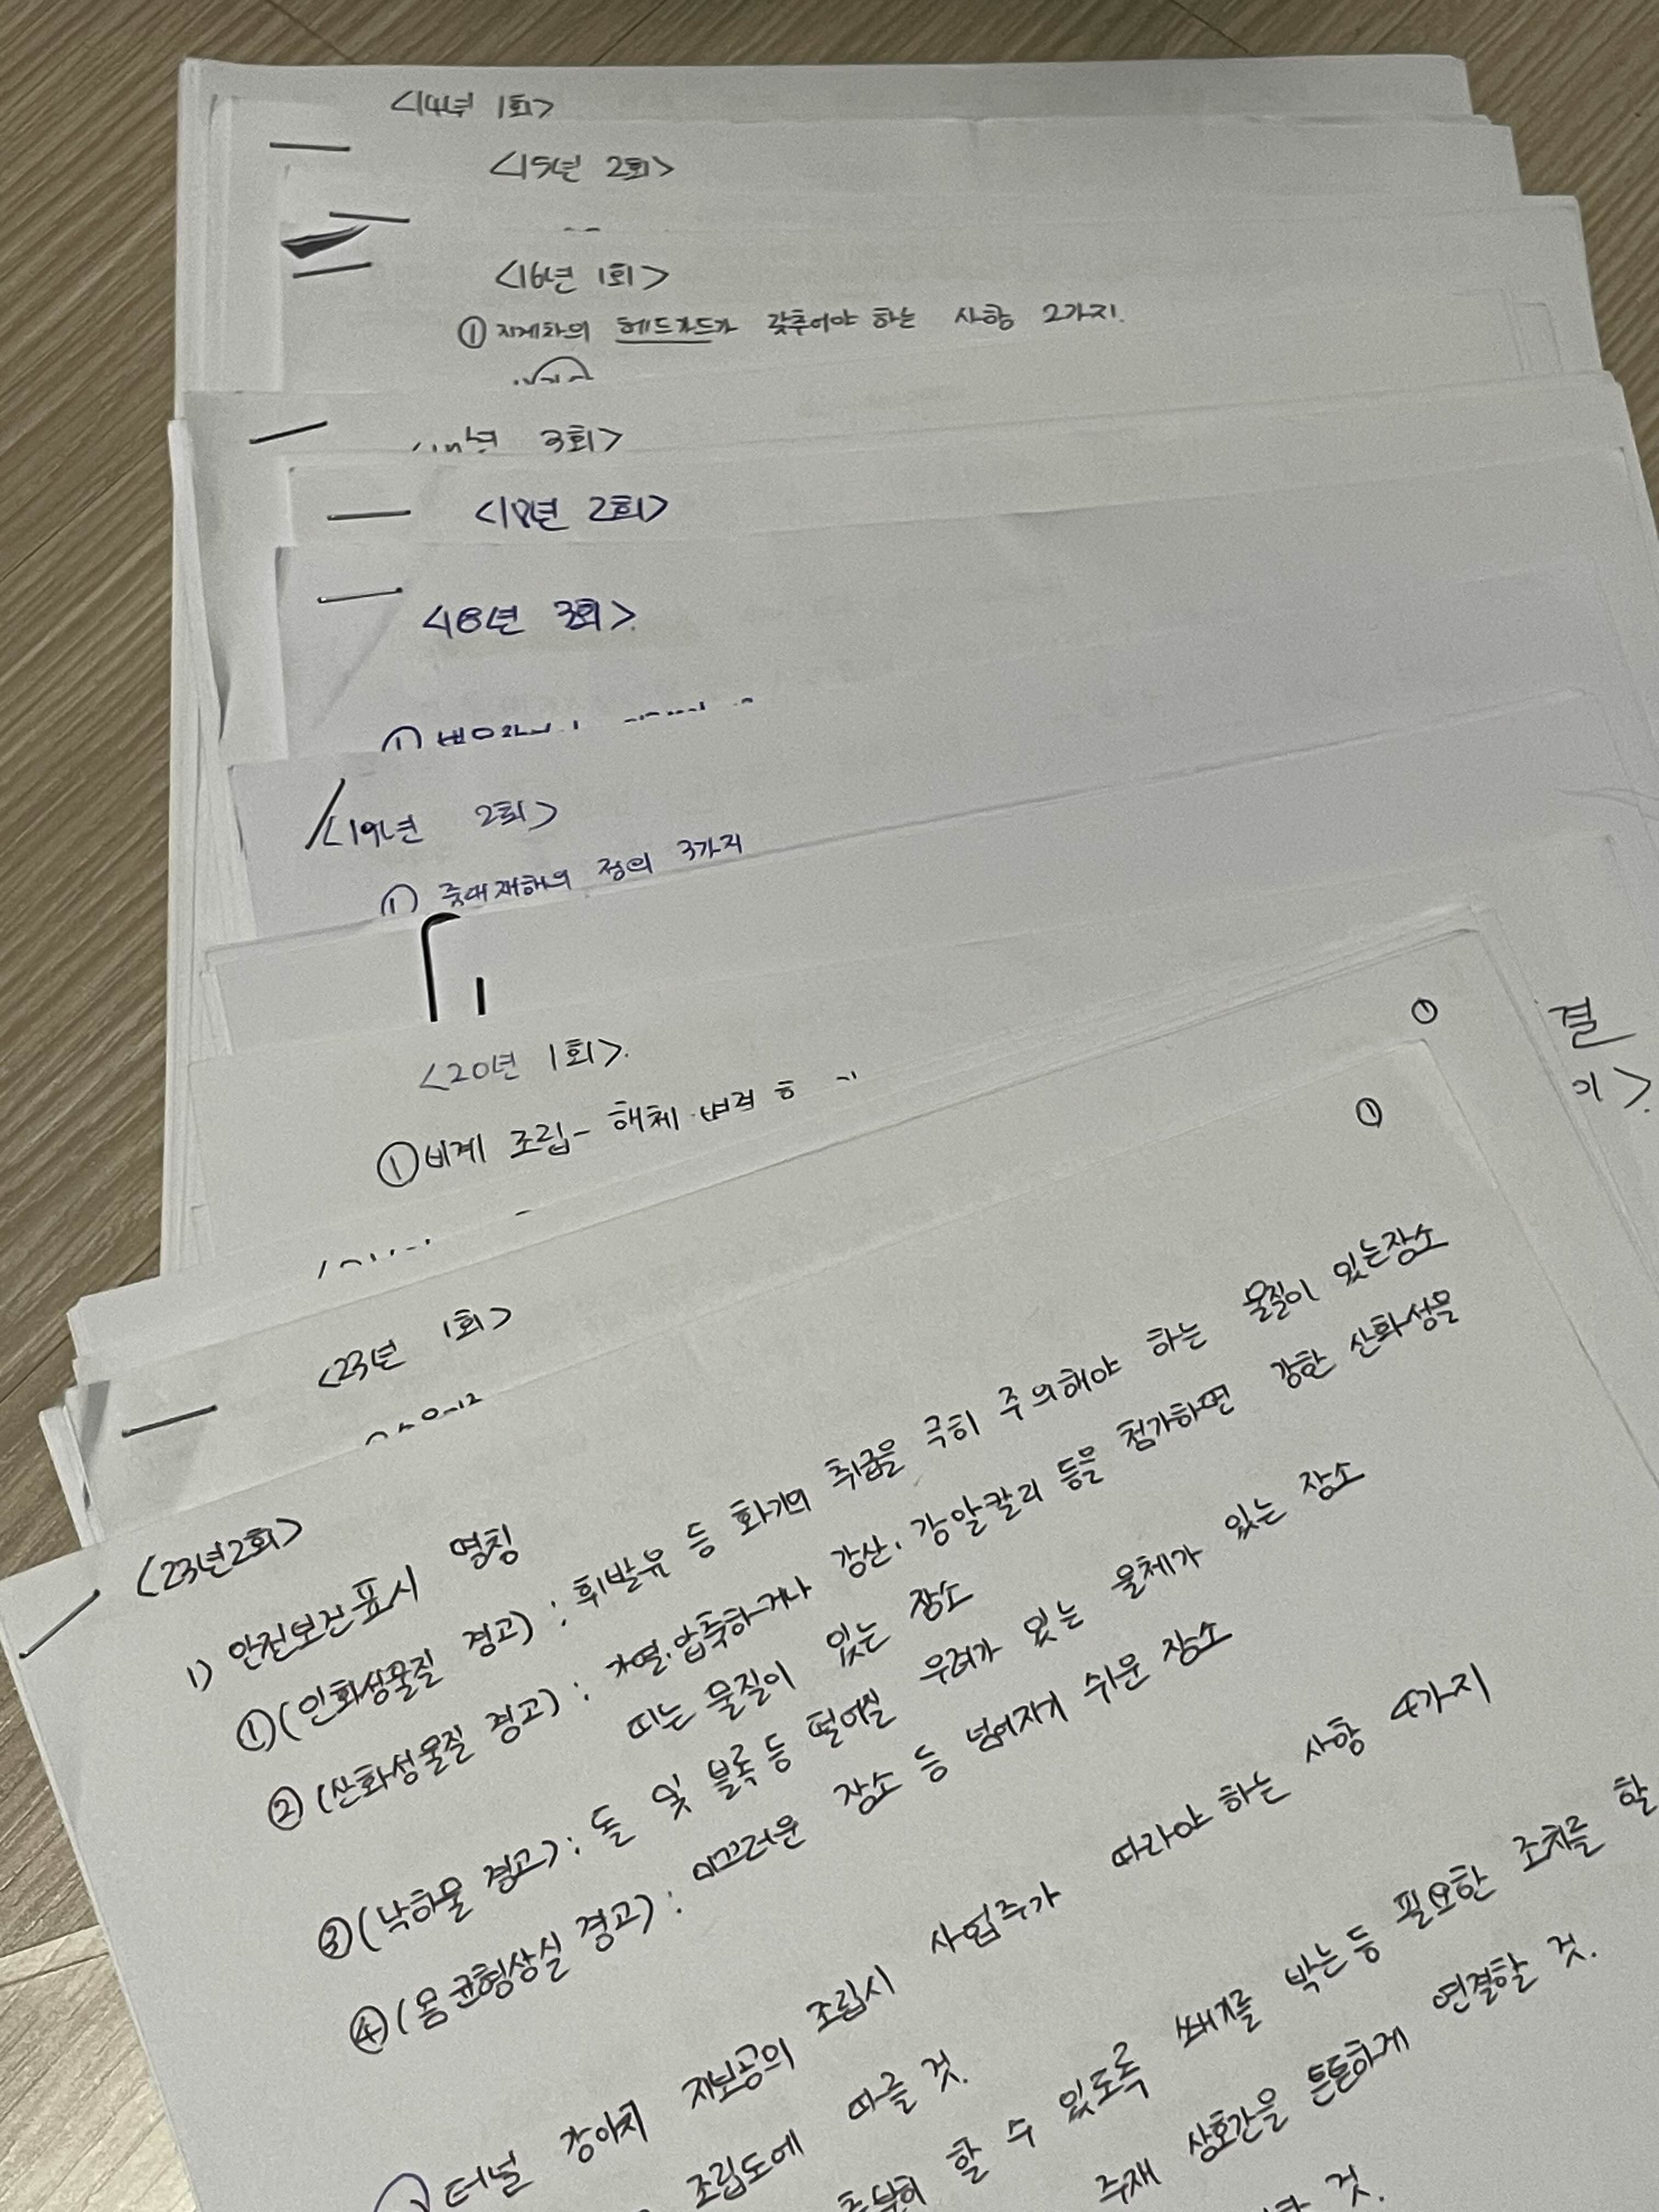 <14년 1회>
<15년 2회>
<16년 1회>
① 지게차의 헤드가드가 갖추어야 하는 사항 2가지.
3회>
<18년 2회>
<18년 3회>
①
<19년 2회>
① 중대재해의 정의 3가지
<20년 1회>.
① 비계 조립- 해체 변경
결
기>.
①
①
<23년 1회>
<23년2회>
1) 안전보건표시 명칭
①(인화성물질 경고) : 휘발유 등 화기의 취급을 극히 주의해야 하는 물질이 있는장소
②(산화성물질 경고) : 가열.압축하거나 강산.강알칼리 등을 첨가하면 강한 산화성을
띠는 물질이 있는 장소
③(낙하물 경고) : 돌 및 블록등 떨어질 우려가 있는 물체가 있는 장소
④(몸균형상실 경고) : 미끄러운 장소 등 넘어지기 쉬운 장소
터널 강아치 지보공의 조립시 사업주가 따라야 하는 사항 4가지
조립도에 따를 것.
충분히 할 수 있도록 쐐기를 박는등 필요한 조치를 할
주재 상호간을 튼튼하게 연결할 것.
것.